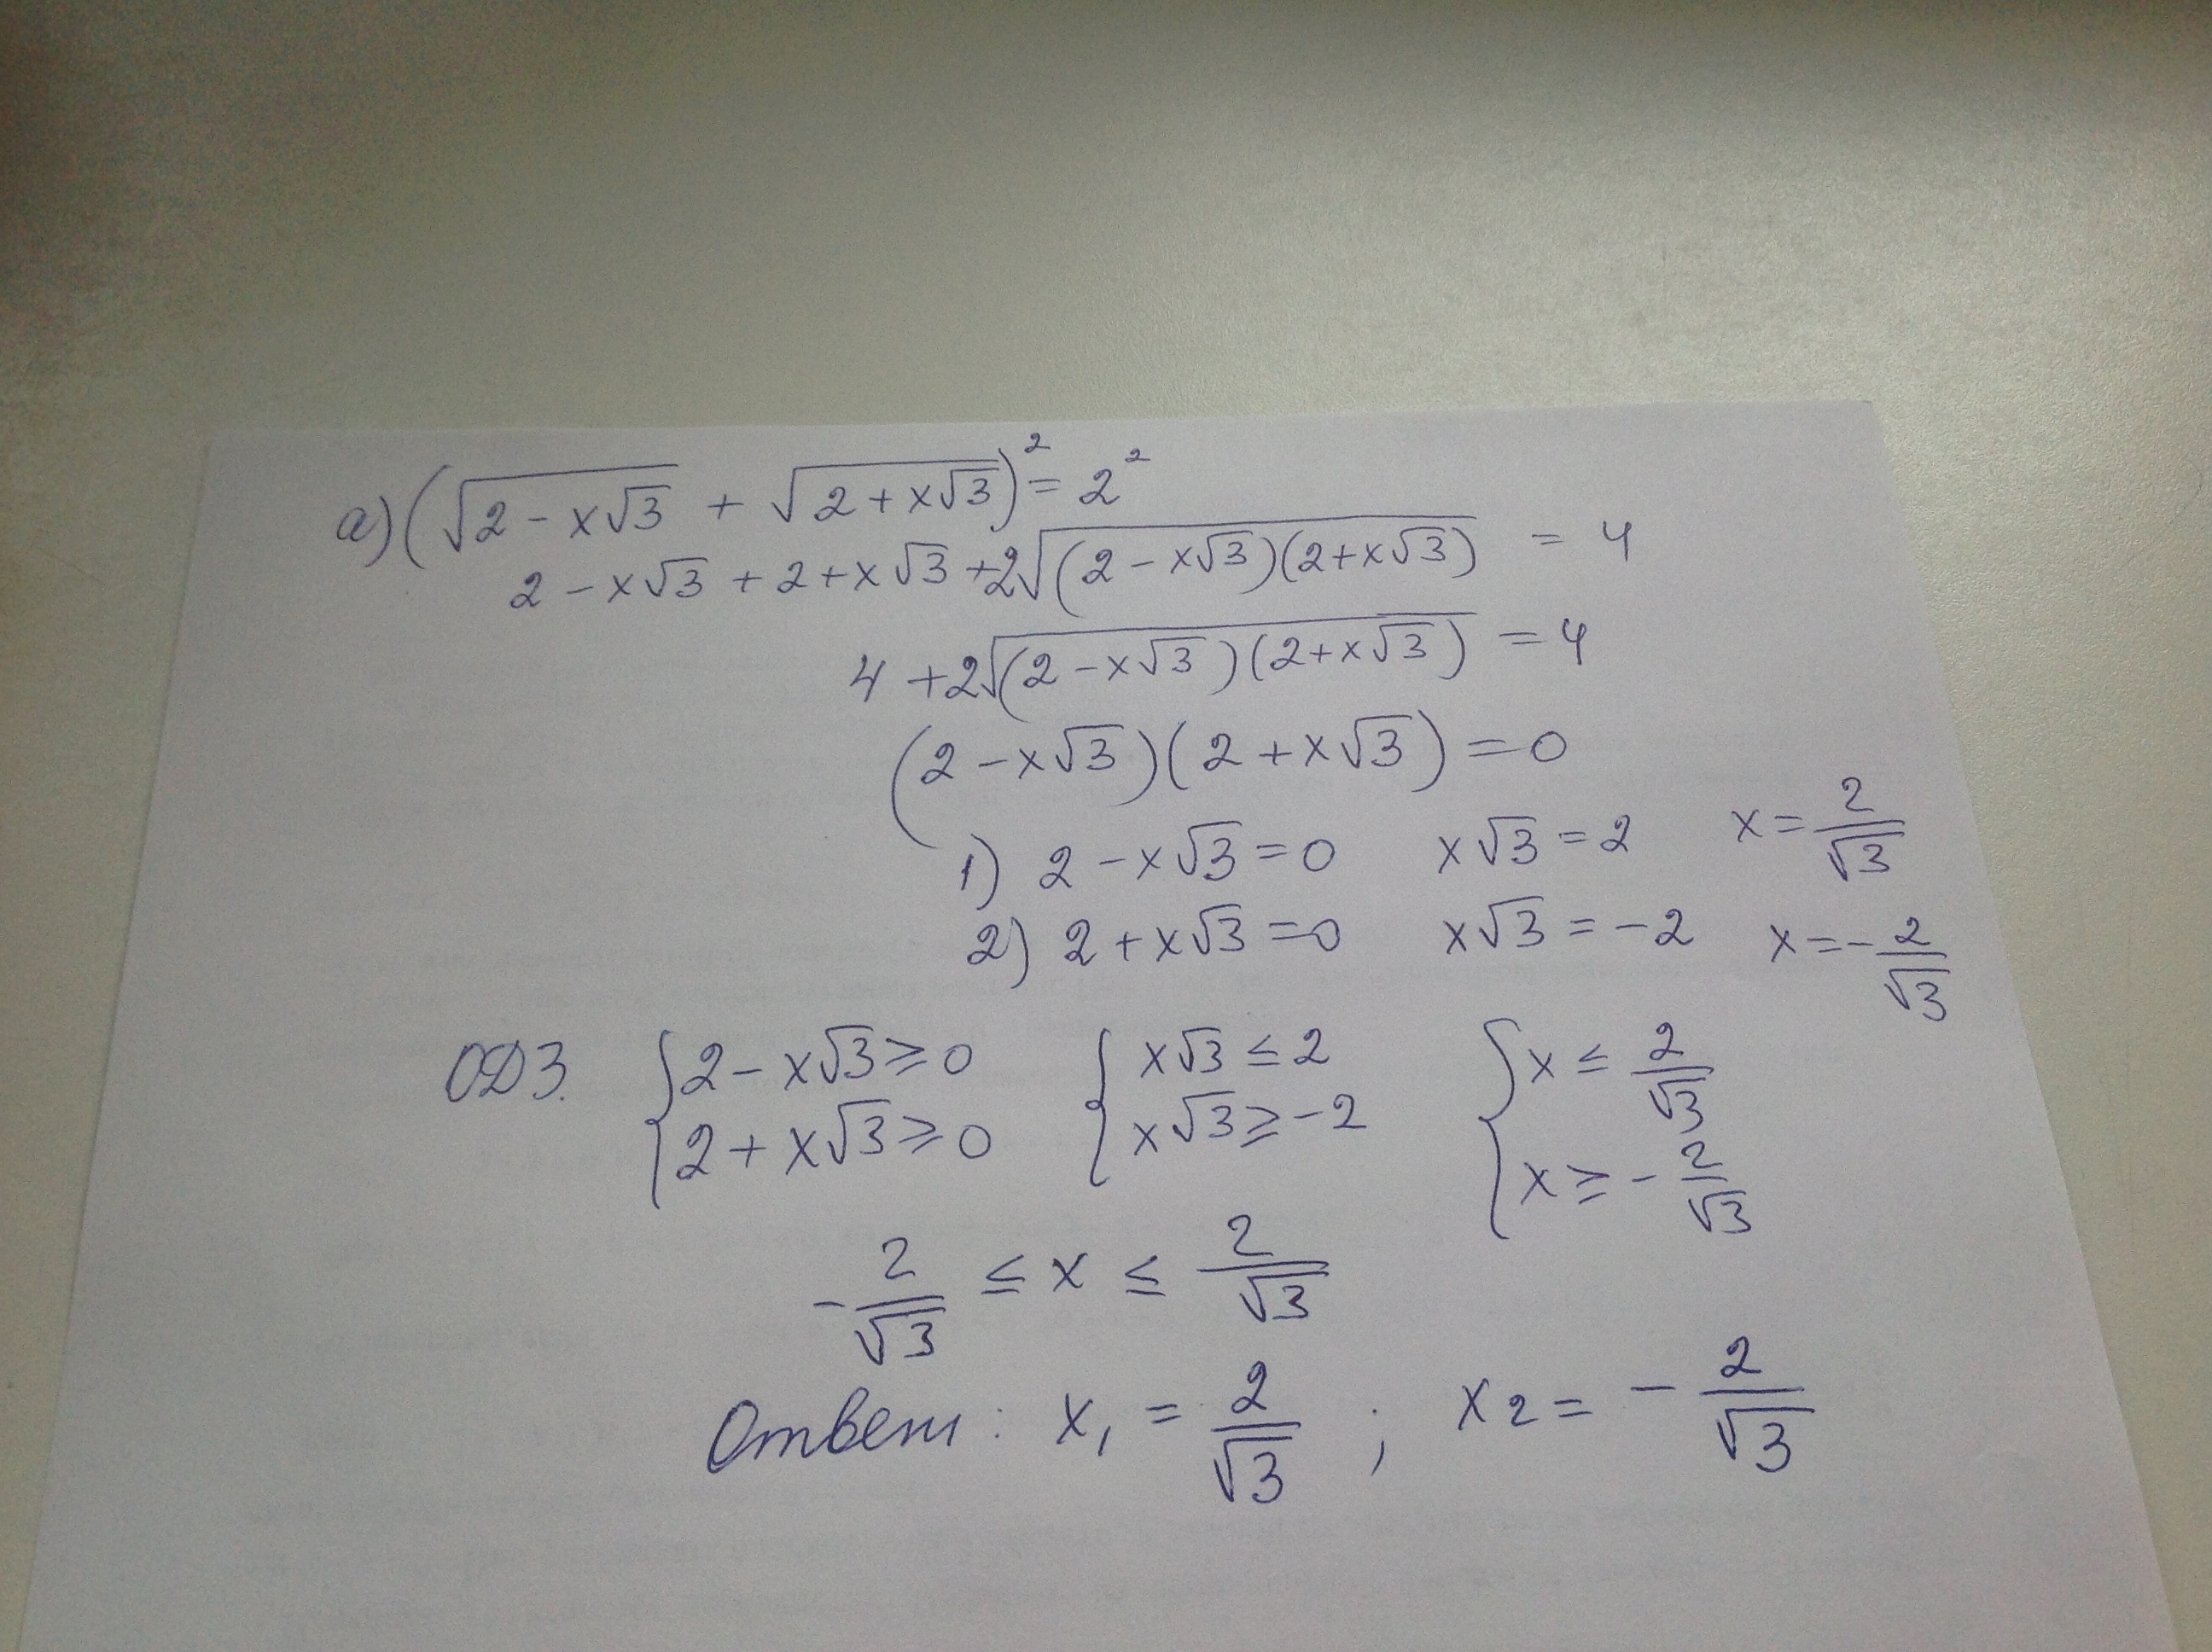 а) (√(2 - x√3) + √(2 + x√3))² = 2²
2 - x√3 + 2 + x√3 + 2√((2 - x√3)(2 + x√3)) = 4
4 + 2√((2 - x√3)(2 + x√3)) = 4
(2 - x√3)(2 + x√3) = 0
1) 2 - x√3 = 0 x√3 = 2 x = 2/√3
2) 2 + x√3 = 0 x√3 = -2 x = -2/√3
ОДЗ. { 2 - x√3 ≥ 0 { x√3 ≤ 2 { x ≤ 2/√3
2 + x√3 ≥ 0 x√3 ≥ -2 x ≥ -2/√3
-2/√3 ≤ x ≤ 2/√3
Ответ: x₁ = 2/√3 ; x₂ = -2/√3